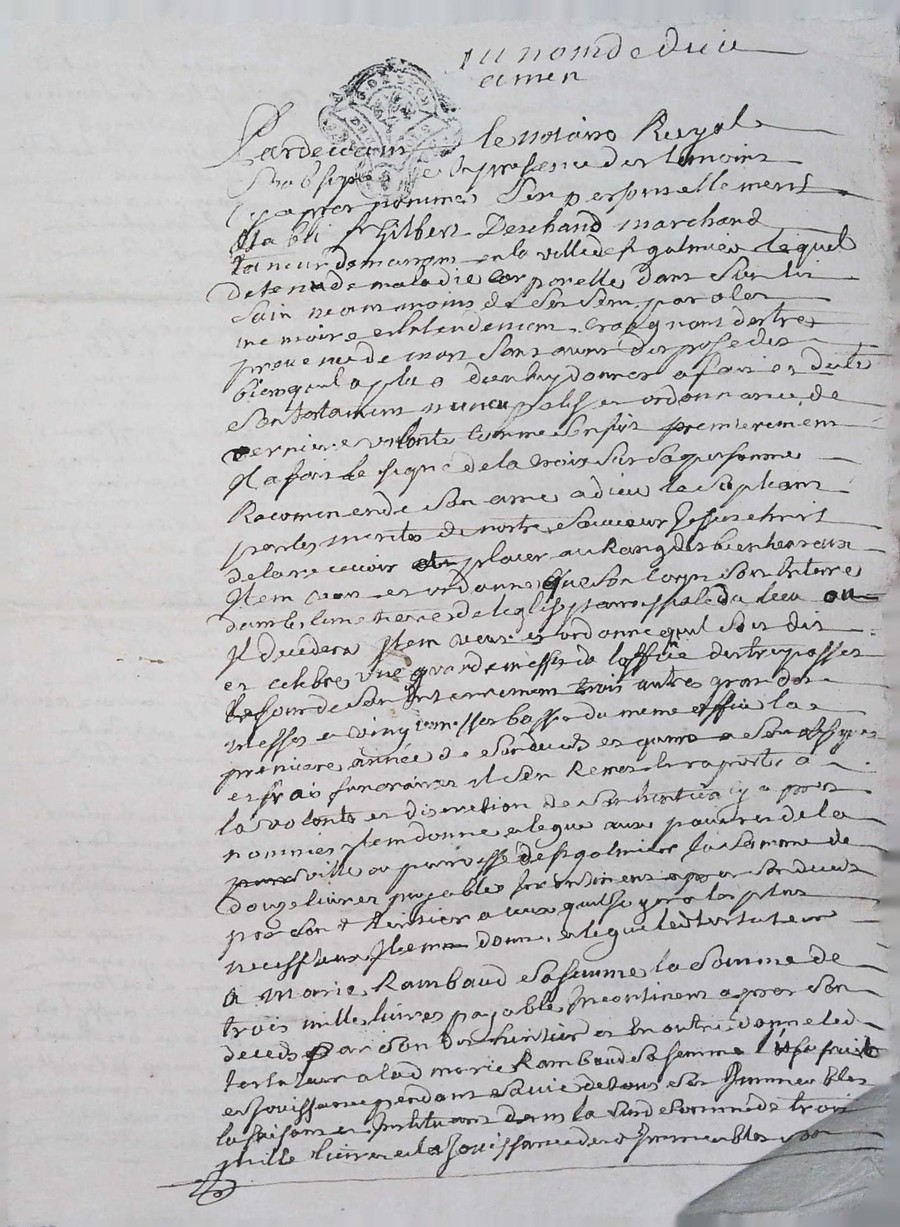 au nom de dieu
amen
Pardevant le notaire Royal
Soubsigné et en presence des temoins
cy apres nommes S'en personnellement
Establi Sr Gilbert Deschand marchand
taneur en la ville de st galmier lequel
detenu de maladie corporelle dans Son lit
Sain neant moins de Ses Sens parolle
memoire et entendement craignant destre
prevenu de mort Sans avoir dispose des
biens quil a plu a dieu luy donner a fait et dicté
Son testament nuncupatif et ordonnance de
derniere volonte comme Sensuit premierement
Il a fait le Signe de la croix Sur Sa personne
Recommende Son ame a dieu le Supliant
par les merites de nostre Sauveur Jesus christ
de la recevoir et placer au Rang des bienheureux
Item veut et ordonne que Son corps Soit Enterré
dans le cimetiere de leglise parroissiale du lieu ou
Il decedera Item veut et ordonne quil Soit dit
et celebré une grande messe de loffice des trepasses
le Jour de Son Enterrement trois autres grandes
messes et vingt messes basses du meme office la
premiere année de Son deces et quand a Ses
et frais funeraires il Sen Remet et raporte a
la volonté et discretion de Son heritier cy apres
nommé Item donne et legue aux pauvres de la
ville ou parroisse de st galmier la Somme de
douze livres payables Incontinent apres Son deces
par Son heritier a ceux quil Jugera les plus
necessiteux Item donne et legue led testateur
a Marie Rambaud Sa femme la Somme de
trois mille livres payable Incontinent apres Son
deces par Son dit heritier et En outre donne led
testateur a lad marie Rambaud Sa femme lusufruit
et Jouissance pendant Sa vie de tous Ses Immeubles
la faisant et Instituant dans la Susd Somme de trois
mille livres et la Jouissance desd Immeubles